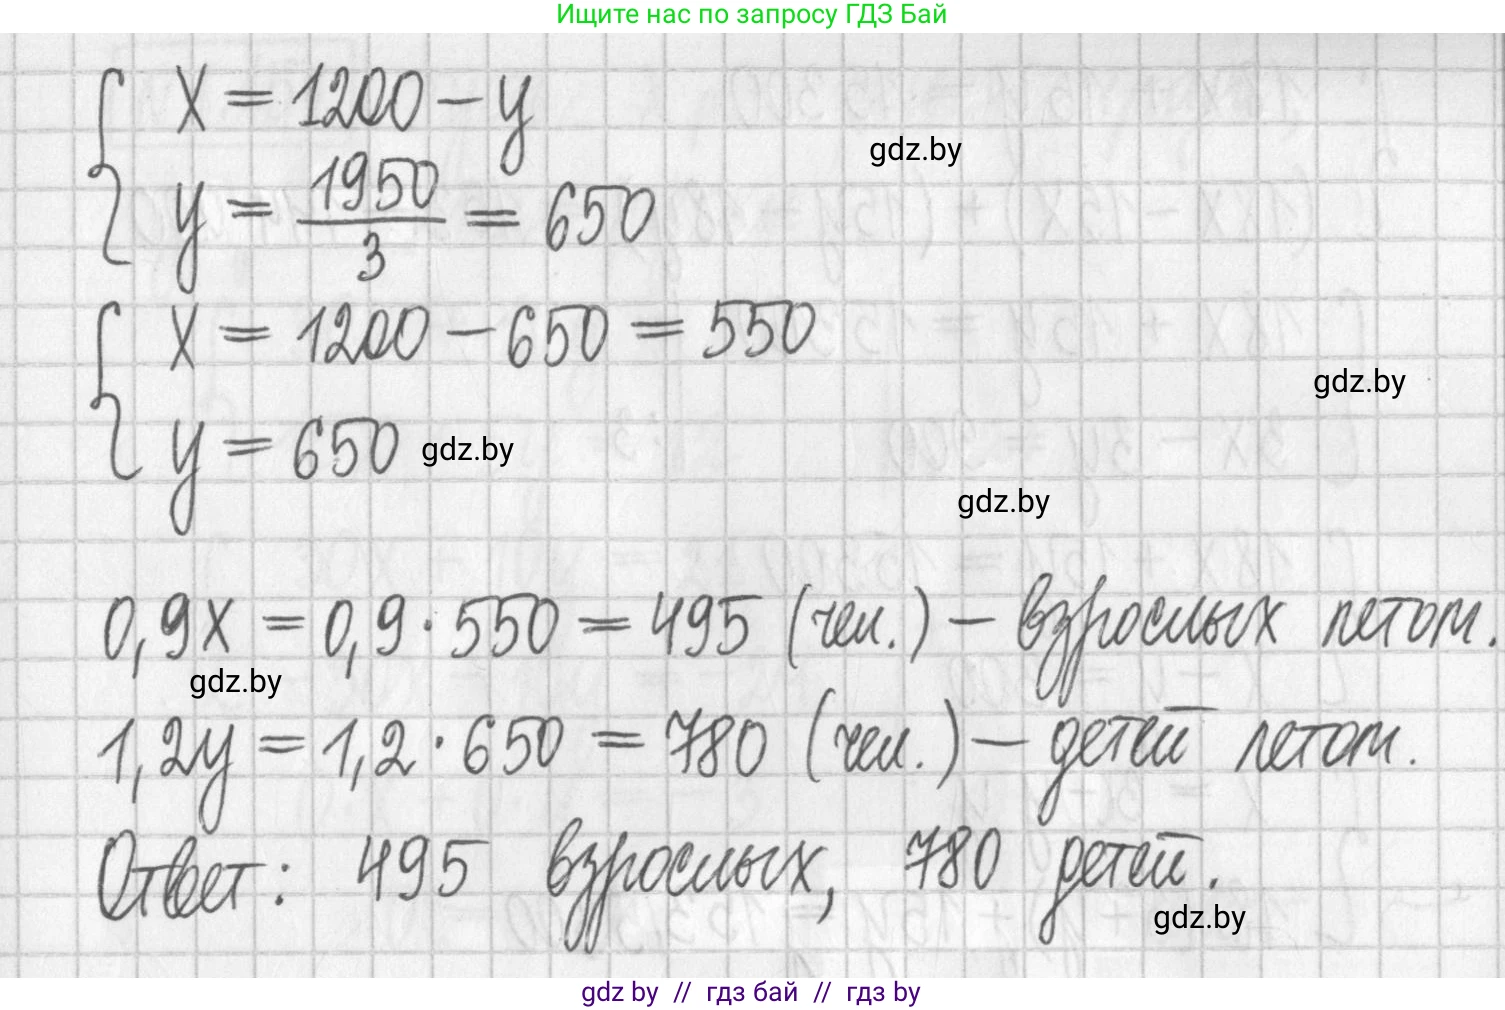 Ищите нас по запросу ГДЗ Бай
x = 1200 - y
gdz.by
y = 1950/3 = 650
x = 1200 - 650 = 550
gdz.by
y = 650
gdz.by
gdz.by
0,9x = 0,9 · 550 = 495 (чел.) - взрослых летом.
gdz.by
1,2y = 1,2 · 650 = 780 (чел.) - детей летом.
Ответ: 495 взрослых, 780 детей.
gdz.by
gdz by // гдз бай // гдз by